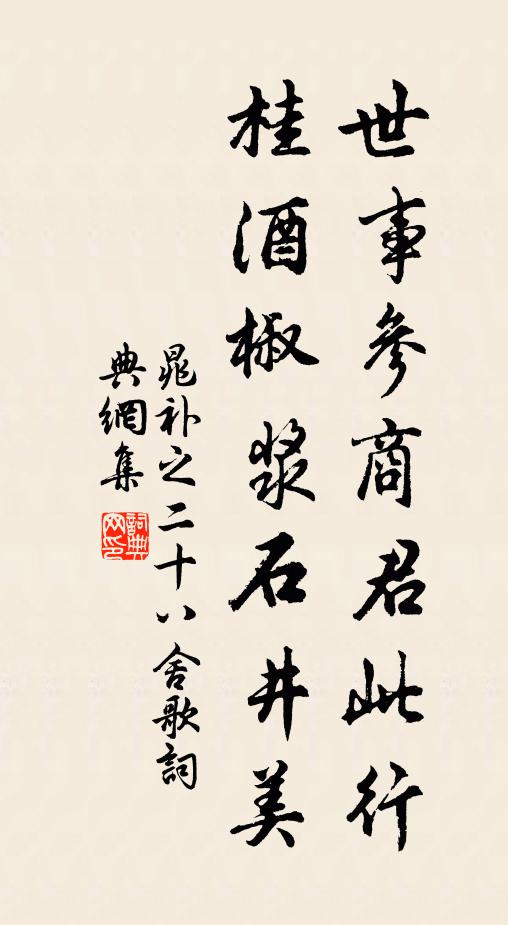 世事參商君此行
桂酒椒漿石井美
晁补之二十八舍歌詞
典網集
詞典網印